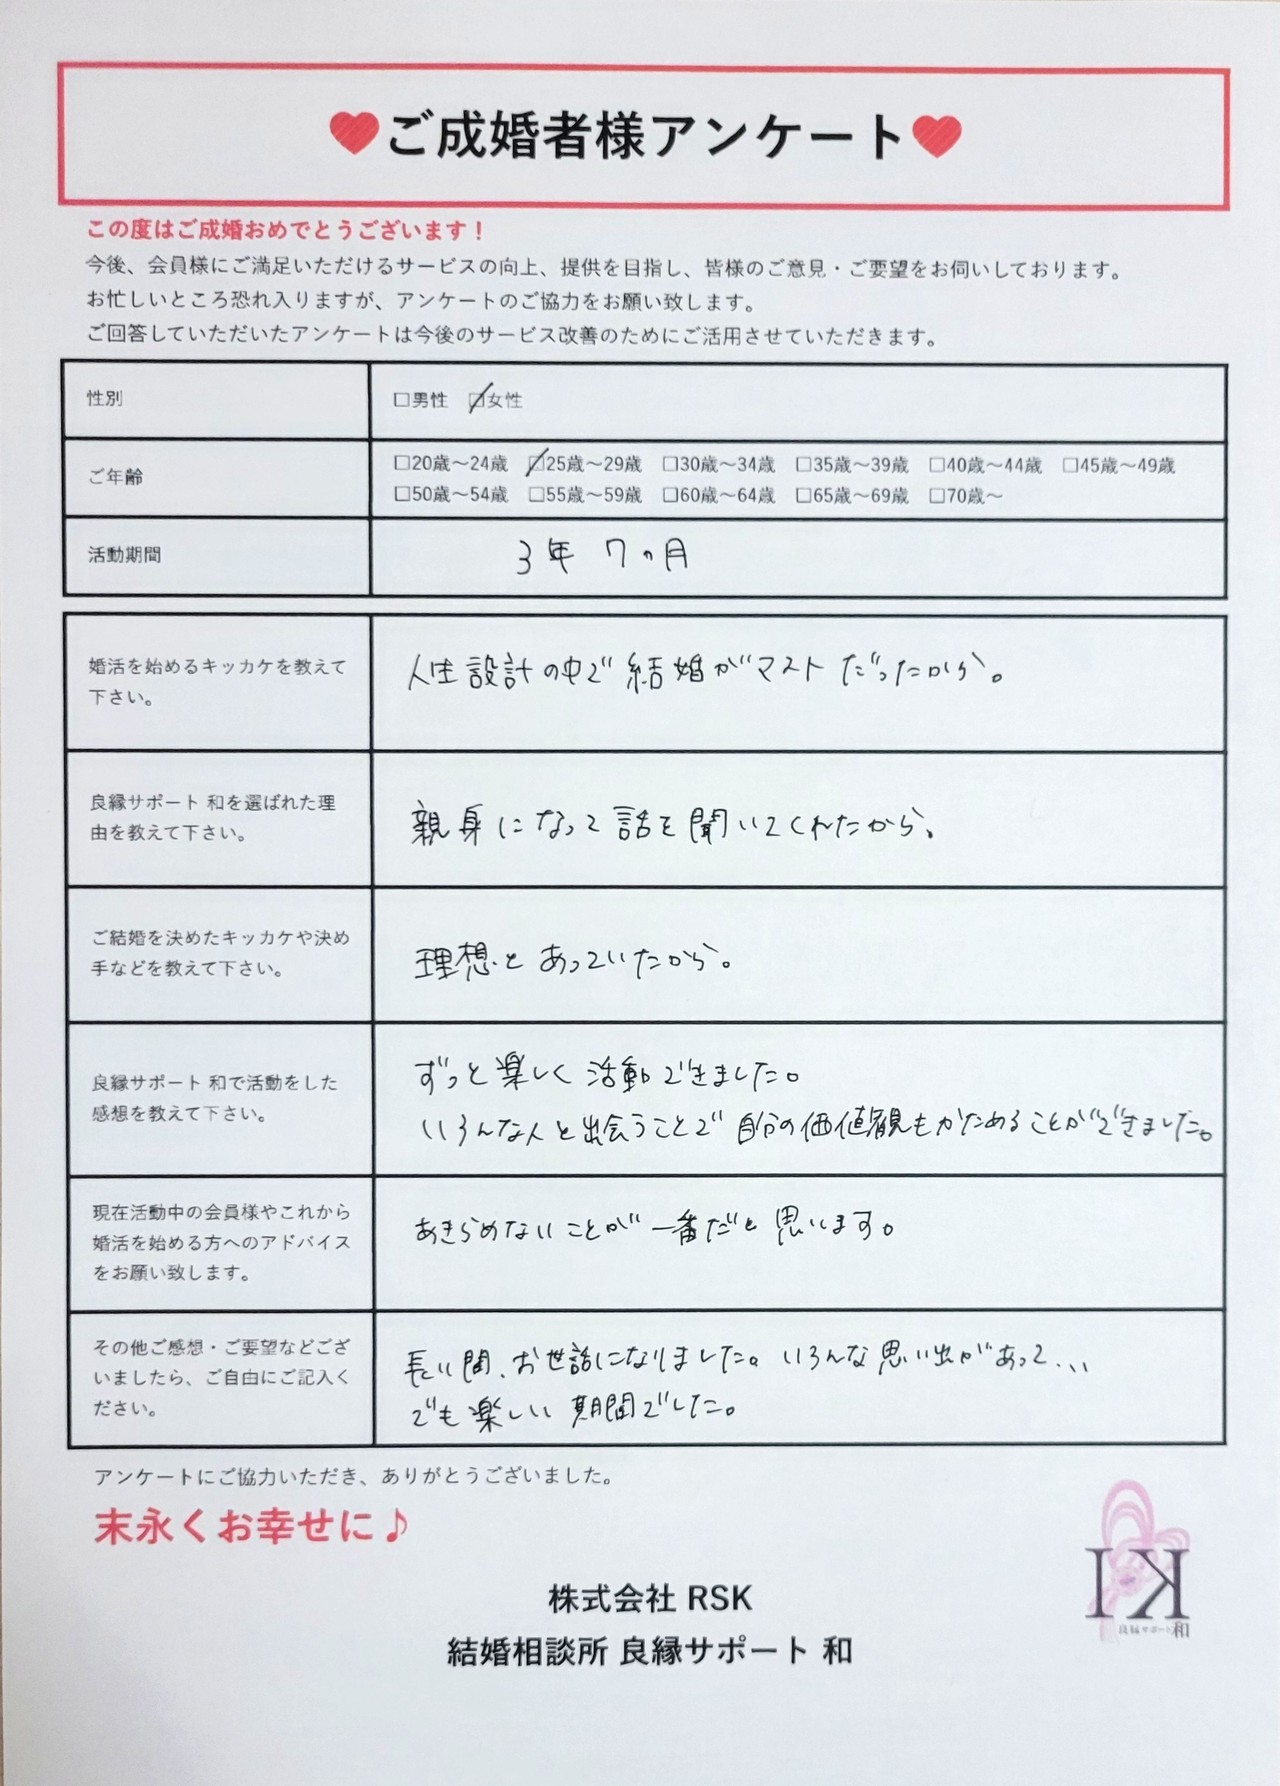 ご成婚者様アンケート
この度はご成婚おめでとうございます！
今後、会員様にご満足いただけるサービスの向上、提供を目指し、皆様のご意見・ご要望をお伺いしております。
お忙しいところ恐れ入りますが、アンケートのご協力をお願い致します。
ご回答していただいたアンケートは今後のサービス改善のためにご活用させていただきます。
性別
□男性 ☑女性
ご年齢
□20歳～24歳 ☑25歳～29歳 □30歳～34歳 □35歳～39歳 □40歳～44歳 □45歳～49歳
□50歳～54歳 □55歳～59歳 □60歳～64歳 □65歳～69歳 □70歳～
活動期間
3年 7ヶ月
婚活を始めるキッカケを教えて
下さい。
人生設計の中で結婚がマストだったから。
良縁サポート 和を選ばれた理
由を教えて下さい。
親身になって話を聞いてくれたから。
ご結婚を決めたキッカケや決め
手などを教えて下さい。
理想とあっていたから。
良縁サポート 和で活動をした
感想を教えて下さい。
ずっと楽しく活動できました。
いろんな人と出会うことで自分の価値観もかためることができました。
現在活動中の会員様やこれから
婚活を始める方へのアドバイス
をお願い致します。
あきらめないことが一番だと思います。
その他ご感想・ご要望などござ
いましたら、ご自由にご記入く
ださい。
長い間、お世話になりました。いろんな思い出があって...
でも楽しい期間でした。
アンケートにご協力いただき、ありがとうございました。
末永くお幸せに♪
株式会社 RSK
結婚相談所 良縁サポート 和
良縁サポート和